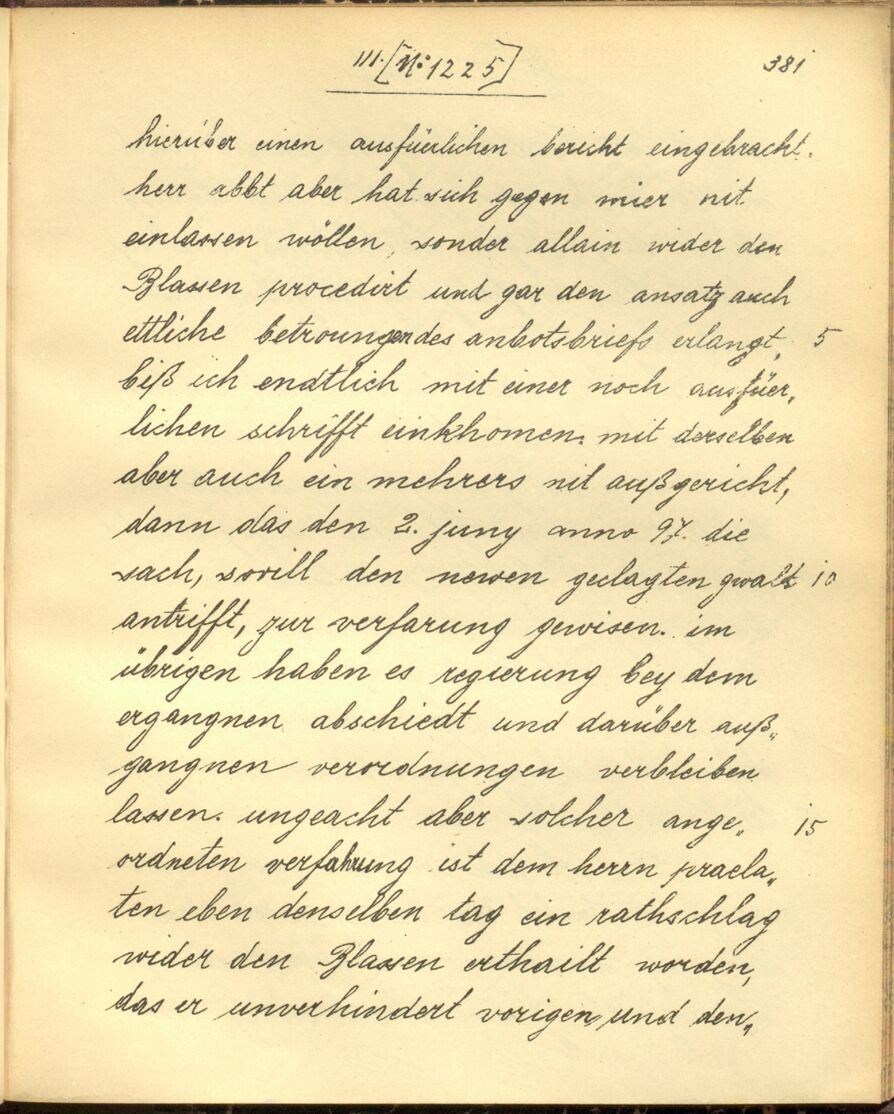 III. [No 1225] 381
hierüber einen ausfüerlichen bericht eingebracht.
herr abbt aber hat sich gegen mier nit
einlassen wöllen, sonder allain wider den
Blassen procedirt und gar den ansatz auch
ettliche betroungen des anbotsbriefs erlangt, 5
biß ich endtlich mit einer noch ausfüer„
lichen schrifft einkhomen. mit derselben
aber auch ein mehrers nit außgericht,
dann das den 2. juny anno 97. die
sach, sovill den newen geclagten gwalt 10
antrifft, zur verfarung gewisen. im
übrigen haben es regierung bey dem
ergangnen abschiedt und darüber auß„
gangnen verordnungen verbleiben
lassen. ungeacht aber solcher ange„ 15
ordneten verfahrung ist dem herrn praela„
ten eben denselben tag ein rathschlag
wider den Blassen erthailt worden,
das er unverhindert vorigen und den„